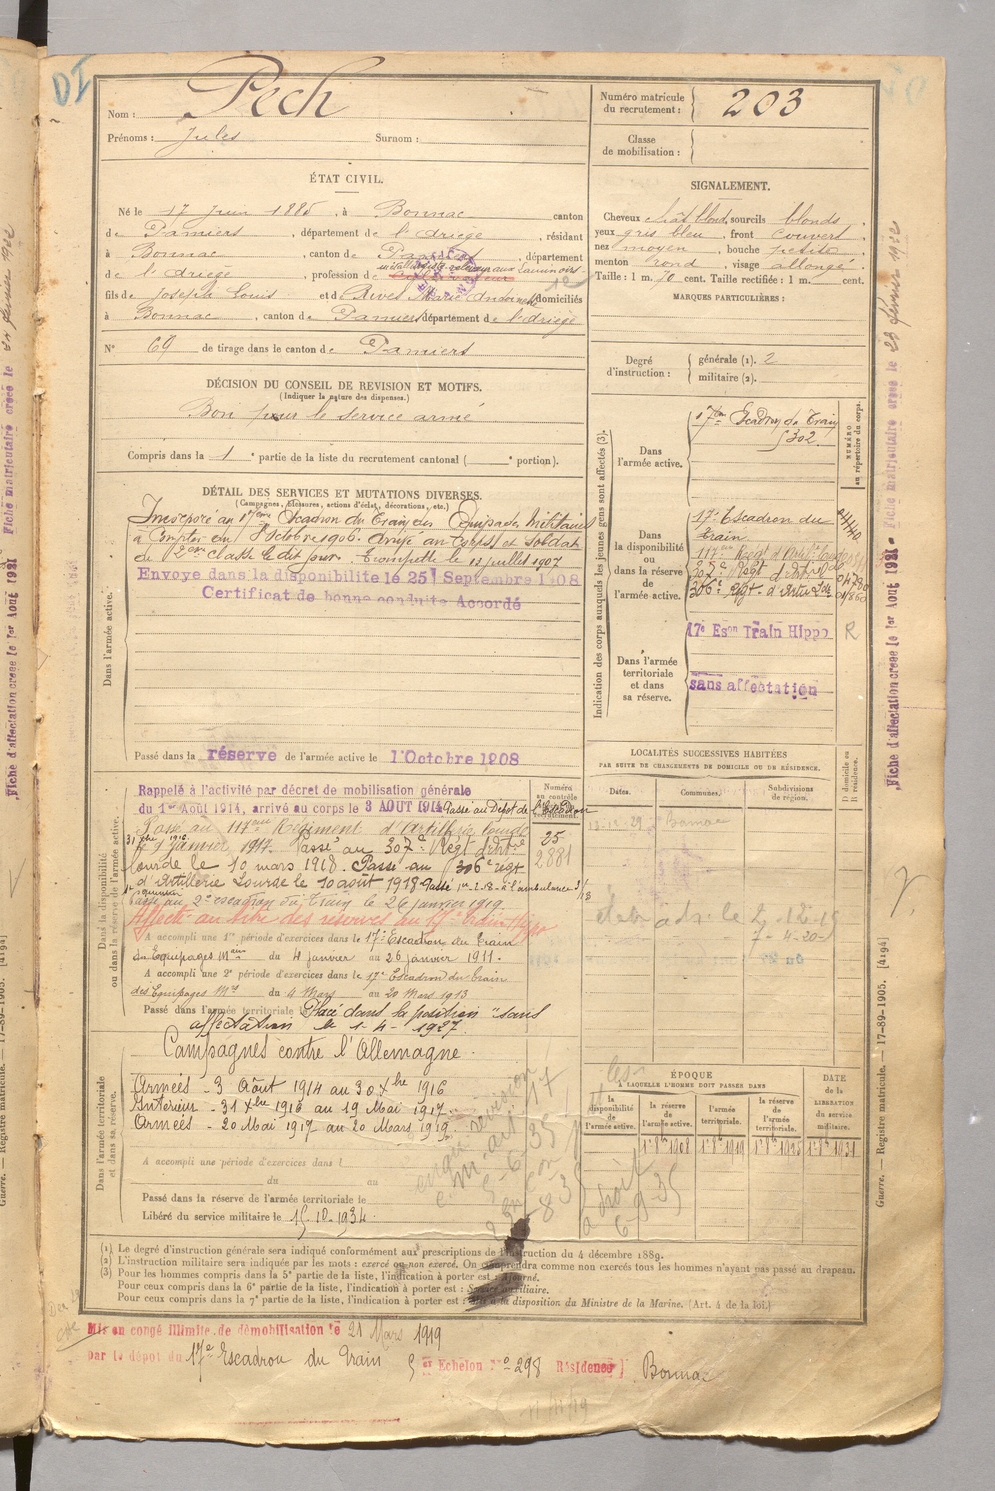 Nom : Pech
Prénoms : Jules Surnom :
Numéro matricule du recrutement : 203
Classe de mobilisation :
ÉTAT CIVIL.
Né le 17 Juin 1885, à Bonnac canton
de Pamiers, département de l'Ariège, résidant
à Bonnac, canton de Pamiers, département
de l'Ariège, profession de
fils de Joseph Louis et de Rives Marie domiciliés
à Bonnac, canton de Pamiers département de l'Ariège
N° 69 de tirage dans le canton de Pamiers
SIGNALEMENT.
Cheveux chât blond, sourcils blonds
yeux gris bleu, front couvert,
nez moyen, bouche petite,
menton rond, visage allongé.
Taille : 1 m. 70 cent. Taille rectifiée : 1 m. cent.
MARQUES PARTICULIÈRES :
DÉCISION DU CONSEIL DE REVISION ET MOTIFS.
(Indiquer la nature des dispenses.)
Bon pour le service armé
Compris dans la 1e partie de la liste du recrutement cantonal ( e portion).
Degré d'instruction : générale (1). 2
militaire (2).
DÉTAIL DES SERVICES ET MUTATIONS DIVERSES.
(Campagnes, blessures, actions d'éclat, décorations, etc.)
Dans l'armée active.
Incorporé au 17eme Escadron du Train des Equipages Militaires
à compter du 8 octobre 1906. Arrivé au corps et soldat
de 2eme classe le dit jour. Trompette le 12 juillet 1907
Envoyé dans la disponibilité le 25 Septembre 1908
Certificat de bonne conduite Accordé
Passé dans la réserve de l'armée active le 1 Octobre 1908
Indication des corps auxquels les jeunes gens sont affectés (3).
NUMÉRO au répertoire du corps.
Dans l'armée active.
17me Escadron du Train
302
Dans la disponibilité ou dans la réserve de l'armée active.
17e Escadron du train.
117me Regt d'Artie Lourde
307e Regt d'Artie Lde
306e Regt d'Artie Lde
Dans l'armée territoriale et dans sa réserve.
17e Eson Train Hippo R
sans affectation
LOCALITÉS SUCCESSIVES HABITÉES
PAR SUITE DE CHANGEMENTS DE DOMICILE OU DE RÉSIDENCE.
Dates. Communes. Subdivisions de région. D domicile ou R résidence.
Bonnac
Dans la disponibilité ou dans la réserve de l'armée active.
Rappelé à l'activité par décret de mobilisation générale
du 1er Août 1914, arrivé au corps le 3 AOUT 1914 Passé au Dépôt de l'Escadron
Passé au 117eme Régiment d'Artillerie lourde
le 1 janvier 1917. Passé au 307e Regt d'Artie
lourde le 10 mars 1918. Passé au 306e régt
d'Artillerie Lourde le 10 août 1918
25
2881
Passé au 2e escadron du Train le 26 janvier 1919.
Affecté au titre des réserves au 17e train Hippo
A accompli une 1re période d'exercices dans le 17e Escadron du train
des Equipages Mres du 4 janvier au 26 janvier 1911.
A accompli une 2e période d'exercices dans le 17e Escadron du train
des Equipages Mres du 4 Mars au 20 Mars 1913
Passé dans l'armée territoriale le Placé dans la position "sans
affectation le 1-4-1927.
Dans l'armée territoriale et dans sa réserve.
Campagnes contre l'Allemagne.
Armées - 3 Août 1914 au 30 Xbre 1916
Intérieur - 31 Xbre 1916 au 19 Mai 1917
Armées - 20 Mai 1917 au 20 Mars 1919.
A accompli une période d'exercices dans l
du au
Passé dans la réserve de l'armée territoriale le
Libéré du service militaire le 15-10-1934
ÉPOQUE
À LAQUELLE L'HOMME DOIT PASSER DANS
la disponibilité de l'armée active. la réserve de l'armée active. l'armée territoriale. la réserve de l'armée territoriale.
DATE de la LIBÉRATION du service militaire.
1-8bre 1908 1-8bre 1919 1-8bre 1925 1-8bre 1931
(1) Le degré d'instruction générale sera indiqué conformément aux prescriptions de l'instruction du 4 décembre 1889.
(2) L'instruction militaire sera indiquée par les mots : exercé ou non exercé. On comprendra comme non exercés tous les hommes n'ayant pas passé au drapeau.
(3) Pour les hommes compris dans la 5e partie de la liste, l'indication à porter est : Ajourné.
Pour ceux compris dans la 6e partie de la liste, l'indication à porter est : Service auxiliaire.
Pour ceux compris dans la 7e partie de la liste, l'indication à porter est : Mis à la disposition du Ministre de la Marine. (Art. 4 de la loi.)
Mis en congé illimité de démobilisation le 21 Mars 1919
par le dépôt du 17e Escadron du Train Echelon N° 298 Résidence } Bonnac
Fiche d'affectation créée le 1er Août 1921
Fiche matriculaire créée le 23 février 1922
Guerre. — Registre matricule. — 17-89-1905. [4194]